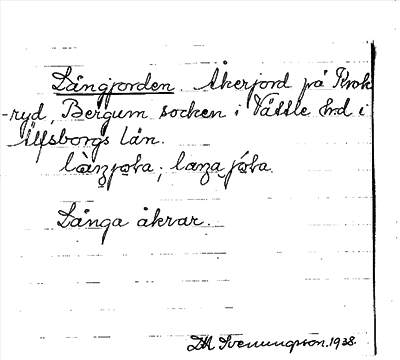 Långjorden Åkerjord på Krok
-ryd, Bergum socken i Vättle hd i
Älfsborgs län.
Långa åkrar.
Svenungsson. 1938.